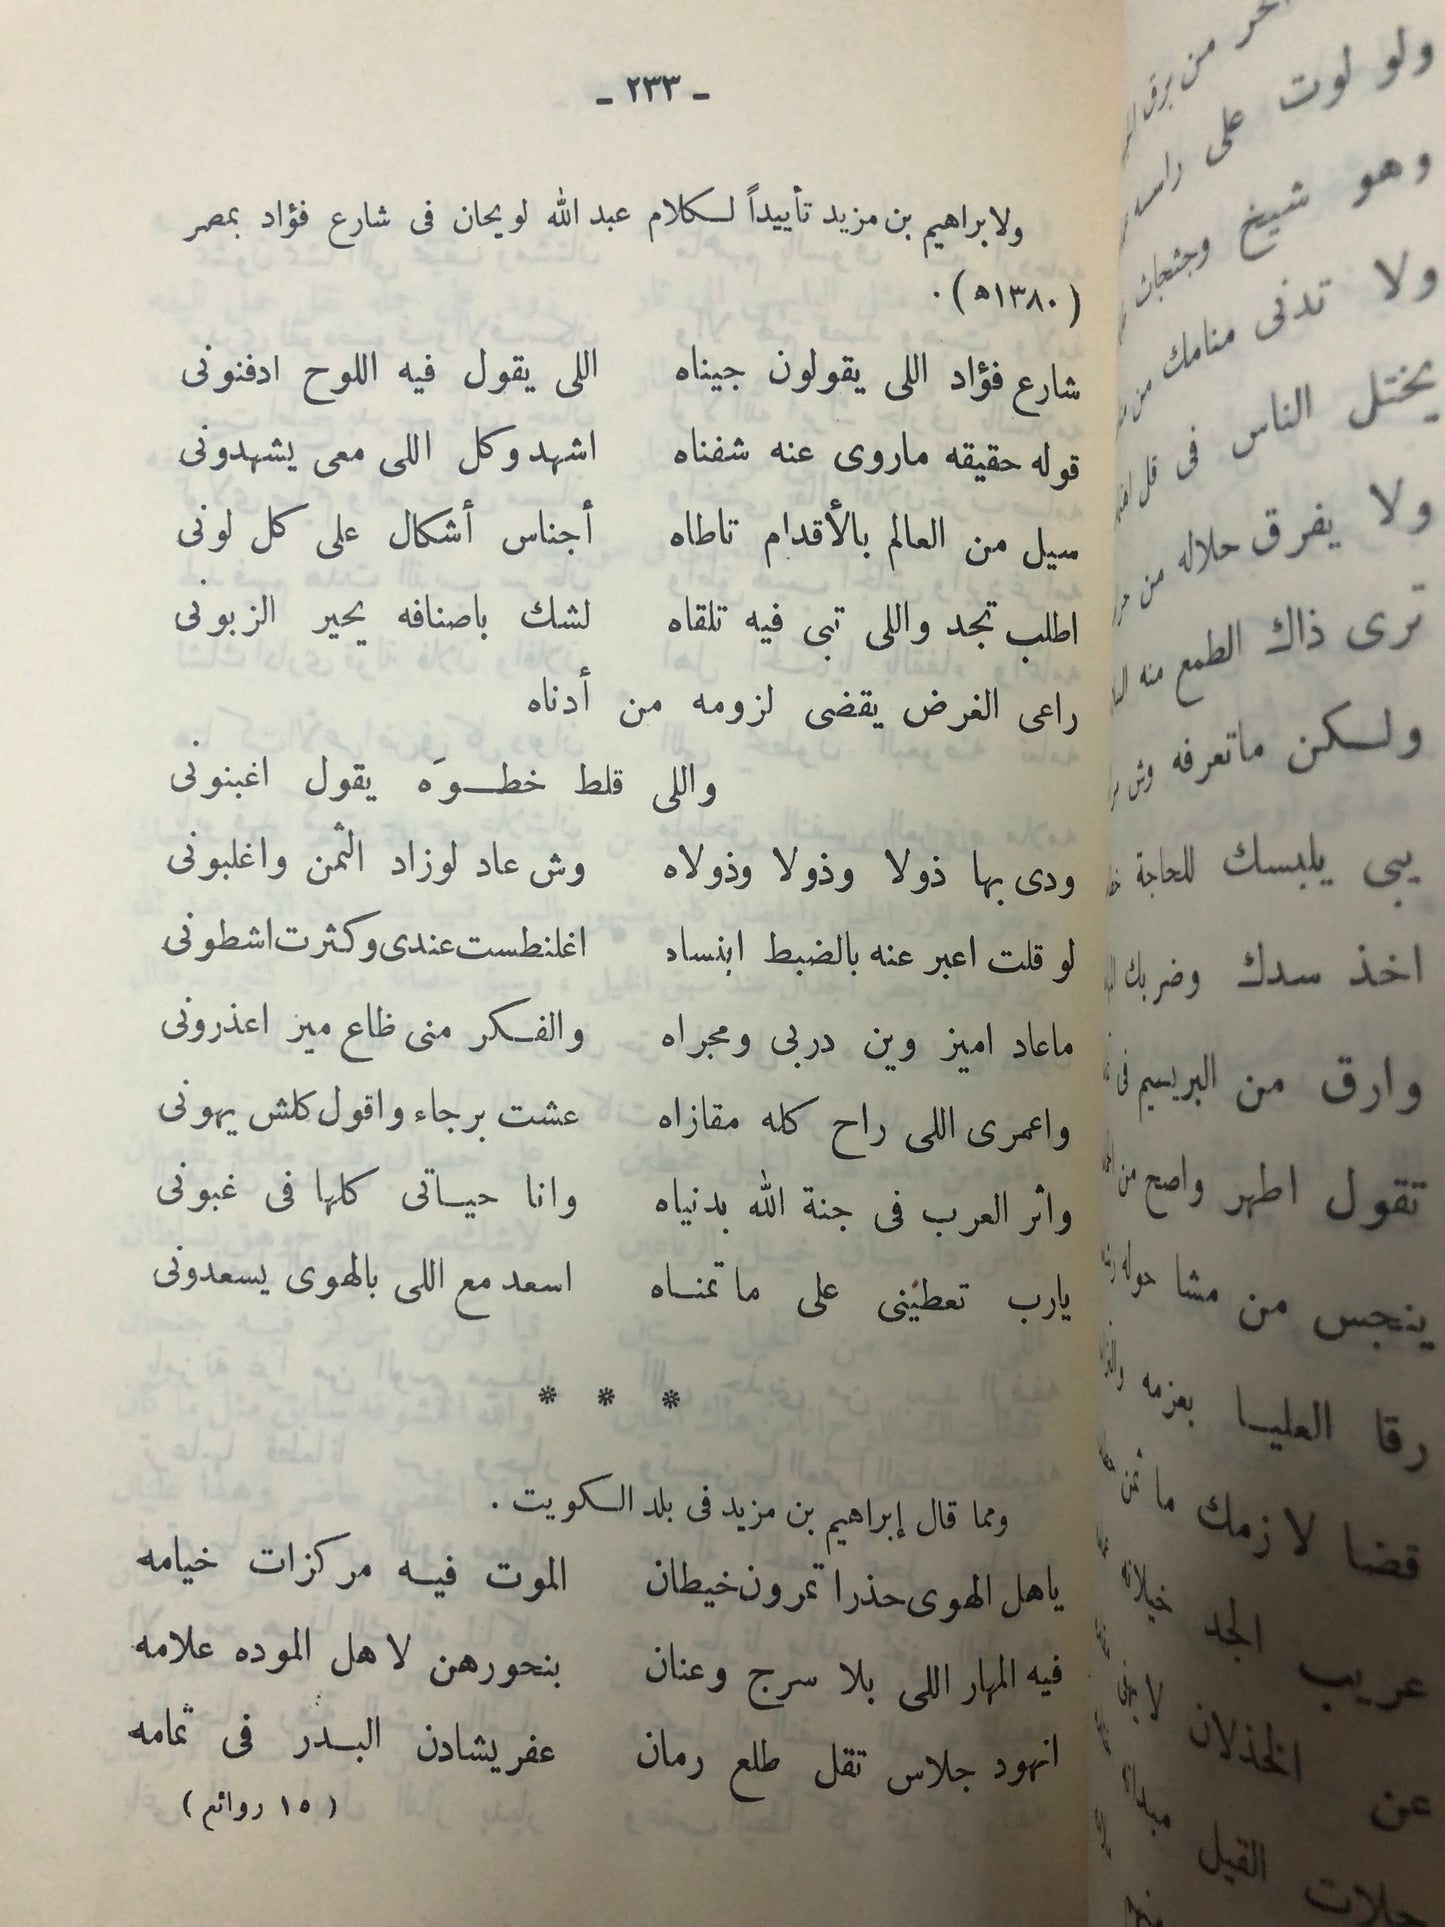 - ٢٣٣ -
ولابراهيم بن مزيد تأييداً لكلام عبد الله لويحان فى شارع فؤاد بمصر
(١٣٨٠ه) .
شارع فؤاد اللى يقولون جيناه اللى يقول فيه اللوح ادفنونى
قوله حقيقه ماروى عنه شفناه اشهد وكل اللى معى يشهدونى
سيل من العالم بالأقدام تاطاه أجناس أشكال على كل لونى
اطلب تجد واللى تبى فيه تلقاه لشك باصنافه يحير الزبونى
راعى الغرض يقضى لزومه من أدناه
واللى قلط خطوَه يقول اغبنونى
ودى بها ذولا وذولا وذولاه وش عاد لوزاد الثمن واغلبونى
لو قلت اعبر عنه بالضبط ابنساه اغلنطست عندى وكثرت اشطونى
ماعاد اميز وين دربى ومجراه والفكر منى ظاع ميز اعذرونى
واعمرى اللى راح كله مقازاه عشت برجاء واقول كلش يهونى
واثر العرب فى جنة الله بدنياه وانا حياتى كلها فى غبونى
يارب تعطينى على ما تمناه اسعد مع اللى بالهوى يسعدونى
* * *
ومما قال إبراهيم بن مزيد فى بلد الكويت .
ياهل الهوى حذرا تمرون خيطان الموت فيه مركزات خيامه
فيه المهار اللى بلا سرج وعنان بنحورهن لاهل الموده علامه
انهود جلاس تقل طلع رمان عفر يشادن البدر فى تمامه
(١٥ روائع)
ولو لوت على راسه
وهو شيخ
ولا تدنى منامك من
يختل الناس فى
ولا يفرق حلاله من
ترى ذاك الطمع منه
ولكن ماتعرفه وش
يبى يلبسك للحاجة
اخذ سدك وضربك
وارق من البريسم فى
تقول اطهر واصح من
ينجس من مشا حوله
رقا العليا بعزمه
قضا لازمك ما ثمن
عريب الجد
عن الخذلان
القيل